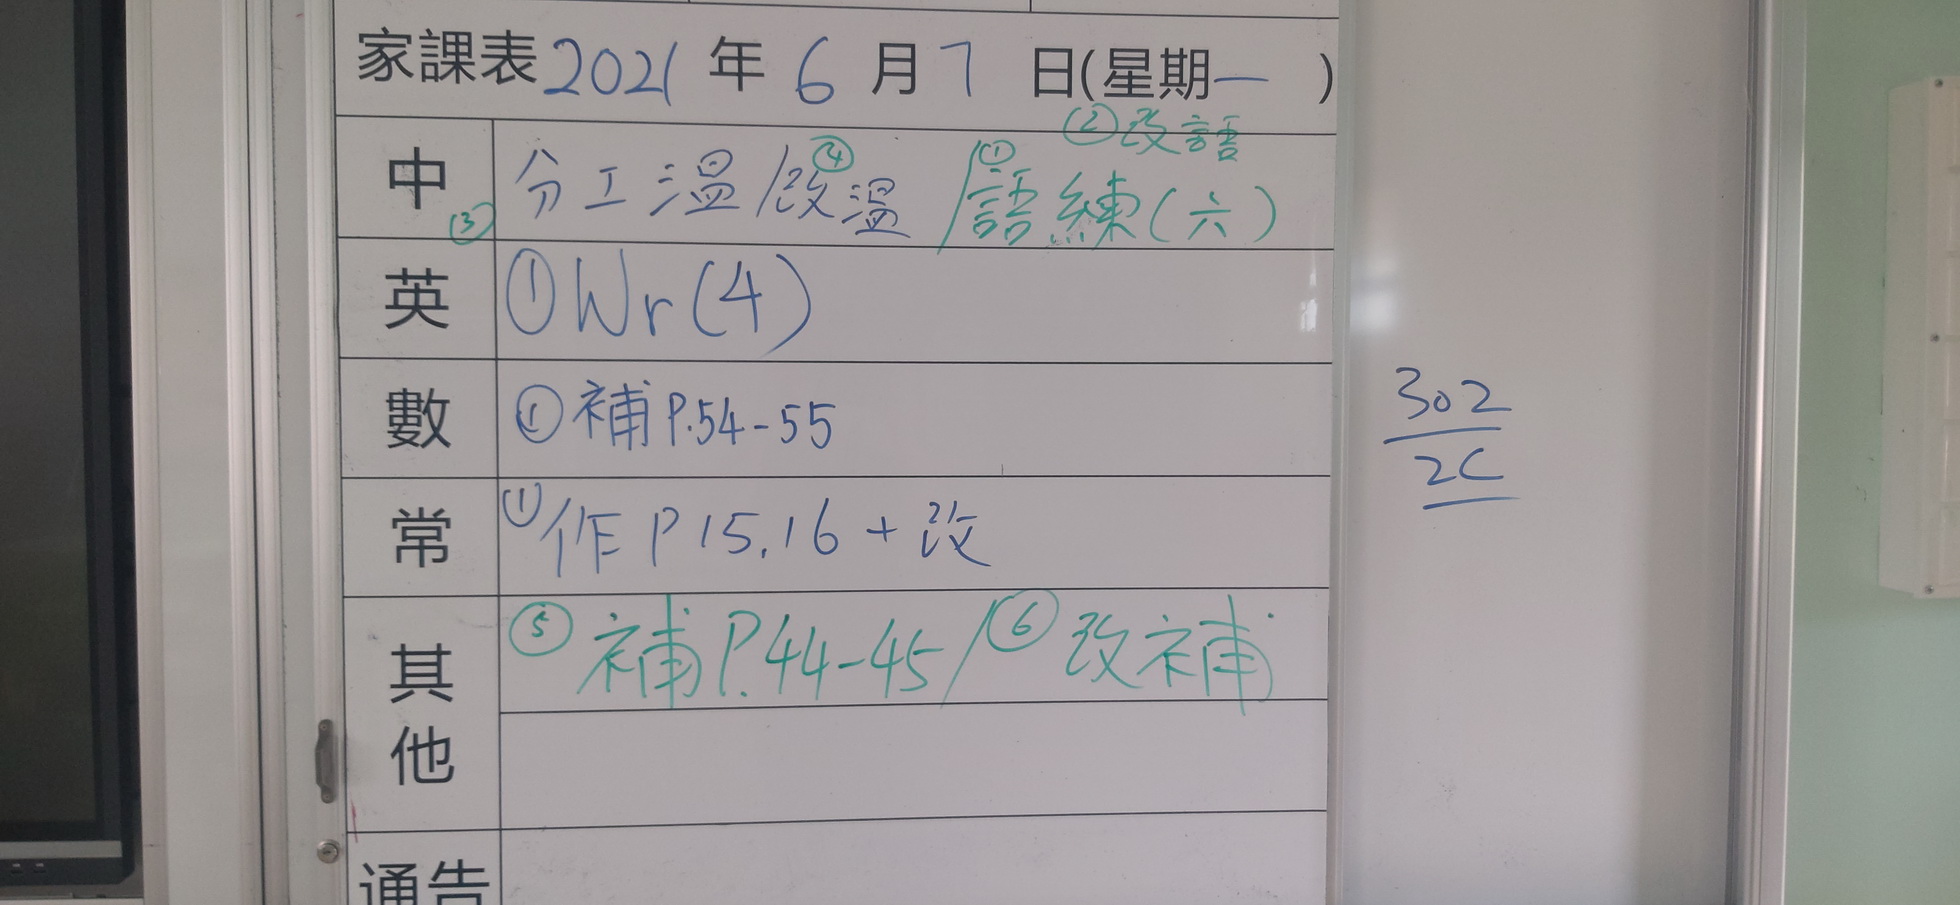 家課表 2021 年 6 月 7 日(星期一 )
②改語
中 ③ 分工溫/④改溫 /①語練(六)
英 ①Wr(4)
數 ①補 P.54-55
常 ①作 P 15.16 + 改
其他 ⑤補 P.44-45/⑥改補
通告
302
2C